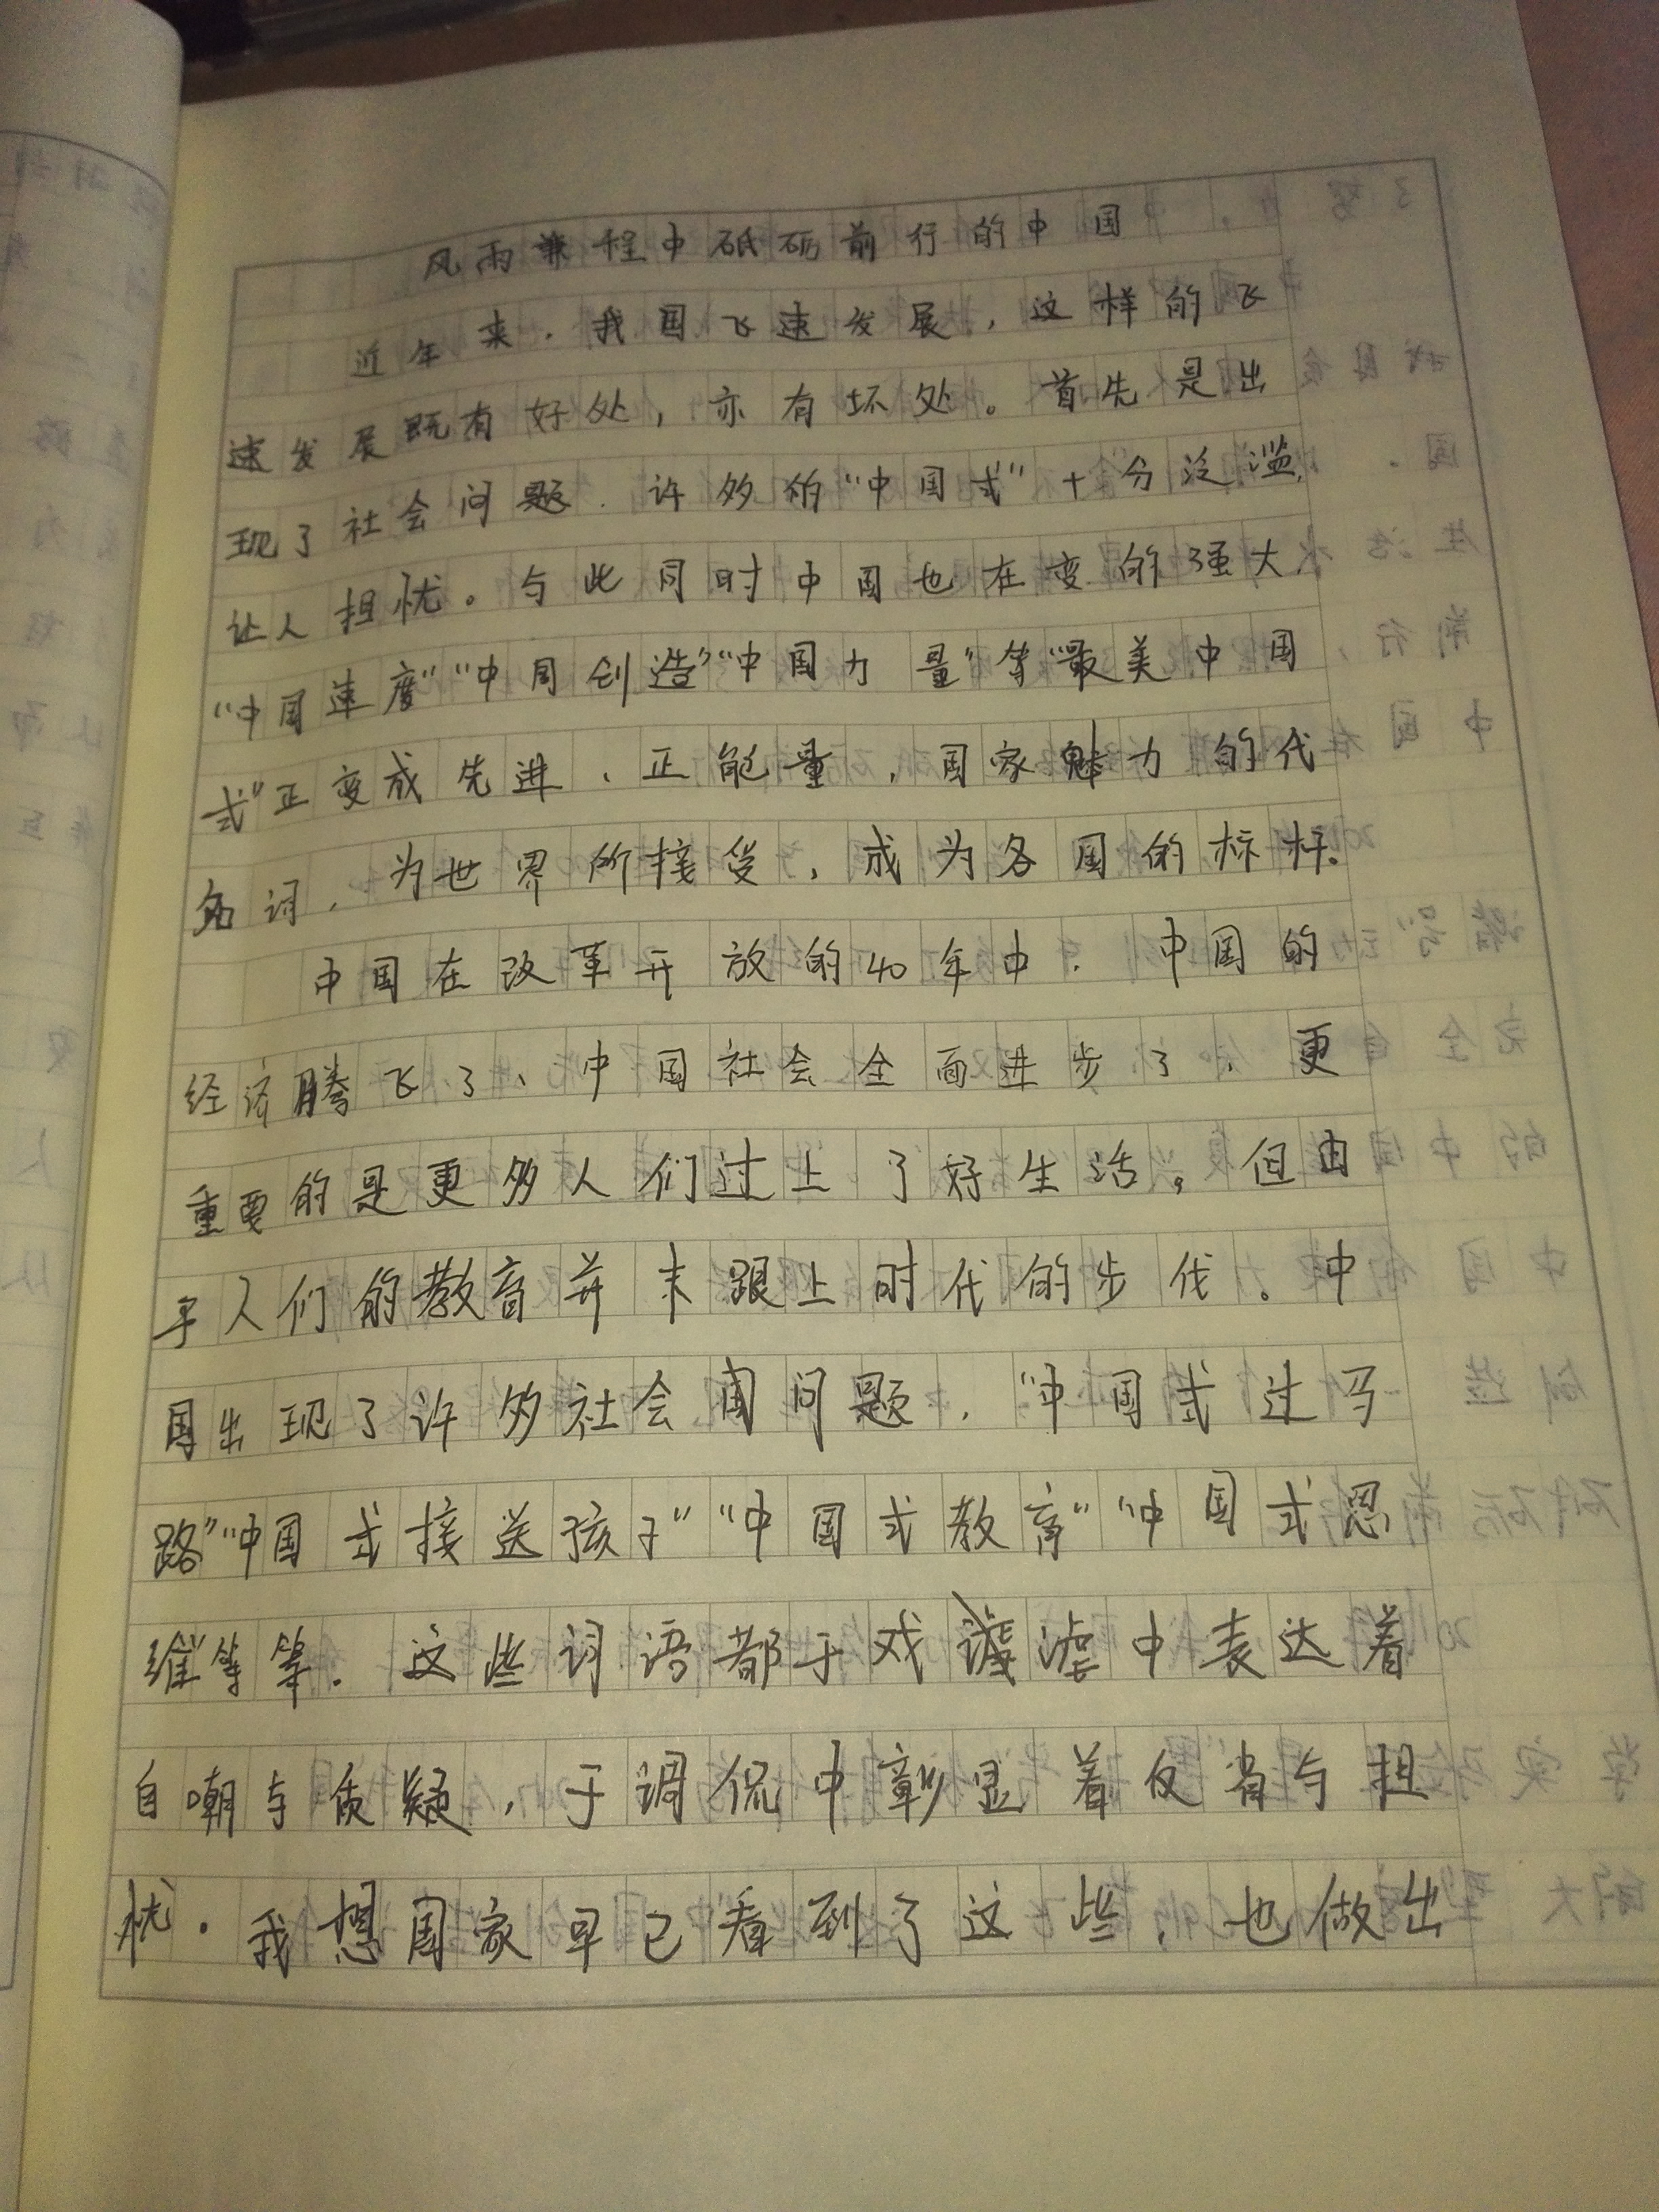 风雨兼程中砥砺前行的中国
近年来，我国飞速发展，这样的飞
速发展既有好处，亦有坏处。首先是出
现了社会问题，许多的“中国式”十分泛滥，
让人担忧。与此同时中国也在变的强大，
“中国速度”“中国创造”“中国力量”等“最美中国
式”正变成先进、正能量，国家魅力的代
名词，为世界所接受，成为各国的标杆。
中国在改革开放的40年中，中国的
经济腾飞了、中国社会全面进步了，更
重要的是更多人们过上了好生活。但由
于人们的教育并未跟上时代的步伐。中
国出现了许多社会问题，“中国式过马
路”“中国式接送孩子”“中国式教育”“中国式思
维”等等。这些词语都于戏谑中表达着
自嘲与质疑，于调侃中彰显着反省与担
忧。我想国家早已看到了这些，也做出